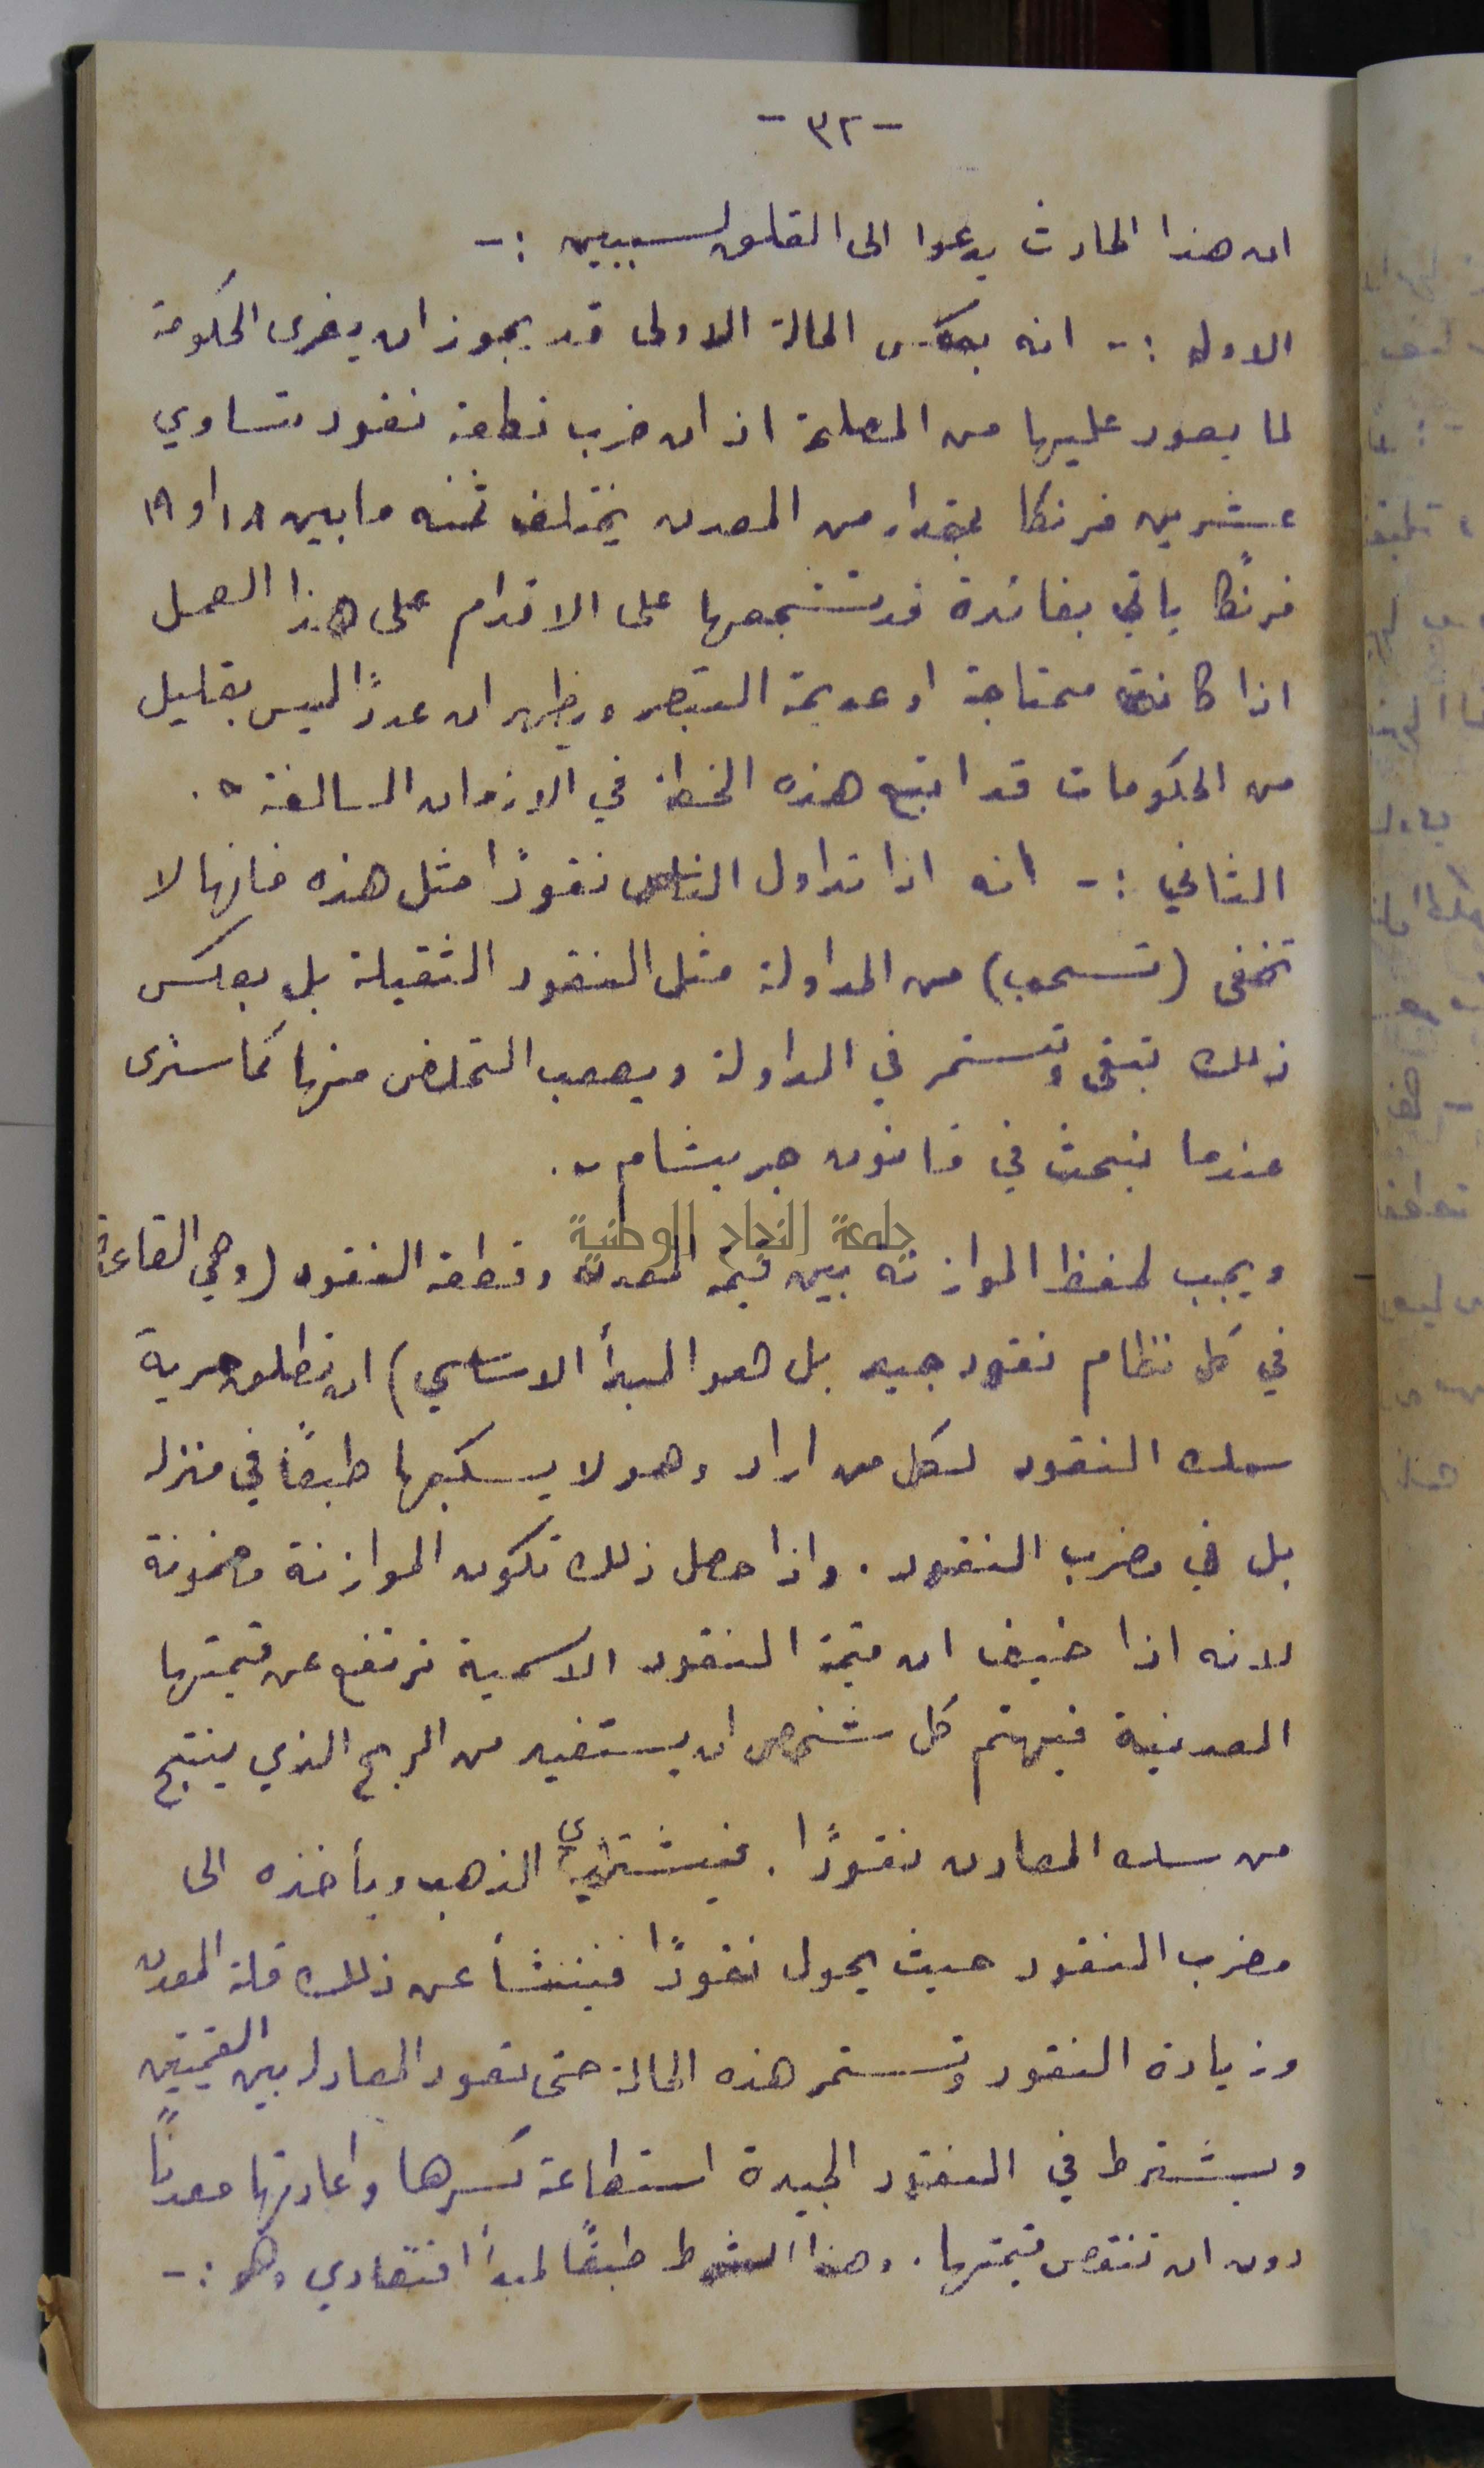 -٣٢-
ان هذا الحادث يدعوا الى القلق لسببين :-
الاول :- انه بعكس الحالة الاولى قد يجوز ان يغرى الحكومة
لما يعود عليها من المصلحة اذ ان ضرب قطعة نقود تساوي
عشرين فرنكا بمقدار من المعدن يختلف ثمنه ما بين ١٨ او ١٩
فرنكًا ياتي بفائدة قد تشجعها على الاقدام على هذا العمل
اذا كانت محتاجة او عديمة التبصر ويظهر ان عددًا ليس بقليل
من الحكومات قد اتبع هذه الخطة في الازمان السالفة .
الثاني :- انه اذا تداول الناس نقودًا مثل هذه فانها لا
تختفى (تسحب) من المداولة مثل النقود الثقيلة بل بعكس
ذلك تبقى وتستمر في المداولة ويصعب التخلص منها كما سنرى
عندما نبحث في قانون جريشام .
جامعة النجاح الوطنية
ويجب لحفظ الموازنة بين قيمة المعدن وقطعة النقود (وهي القاعدة
في كل نظام نقود جيد بل هو المبدأ الاساسي) ان تطلق حرية
سك النقود لكل من اراد وهو لا يسكها طبعًا في منزله
بل في مضرب النقود . واذا حصل ذلك تكون الموازنة مضمونة
لانه اذا خيف ان قيمة النقود الاسمية ترتفع عن قيمتها
المعدنية فيهتم كل شخص ان يستفيد من الربح الذي ينتج
من سك المعادن نقودًا . فيشتري الذهب ويأخذه الى
مضرب النقود حيث يحول نقودًا فينشأ عن ذلك قلة المعدن
وزيادة النقود وتستمر هذه الحالة حتى تعود المعادل بين القيمتين
ويشترط في النقود الجيدة استطاعة كسرها واعادتها معدنًا
دون ان تنقص قيمتها . وهذا الشرط طبقًا لمبدأ اقتصادي وهو :-